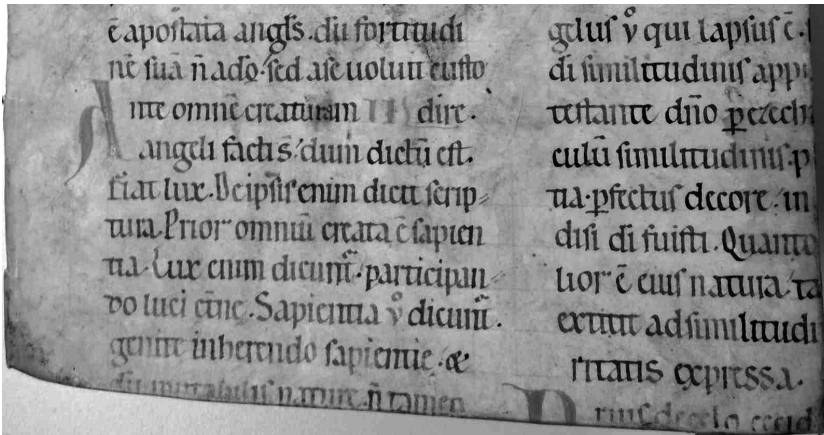 ē apostata angłs. dū fortitudi
nē suā n̄ ad dō. sed a se uoluit custo
Ante omnē creaturam dire.
angeli facti s̄. dum dictū est.
fiat lux. De ipsis enim dicit scrip
tura. Prior omniū creata ē sapien
tia. Lux enim dicunt̄. participan
do luci etn̄e. Sapientia v̊ dicunt̄.
genite inherendo sapientie. &
dū mutabilis nature. n̄ tamen
gelus v̊ qui lapsus ē.
di similitudinis app
testante dn̄o ꝑ ezech
culū similitudinis. p
tia. ꝑfectus decore. in
disi di fuisti. Quanto
lior ē eius natura. ta
extitit ad similitudi
ritatis expressa.
Prius de celo cecid